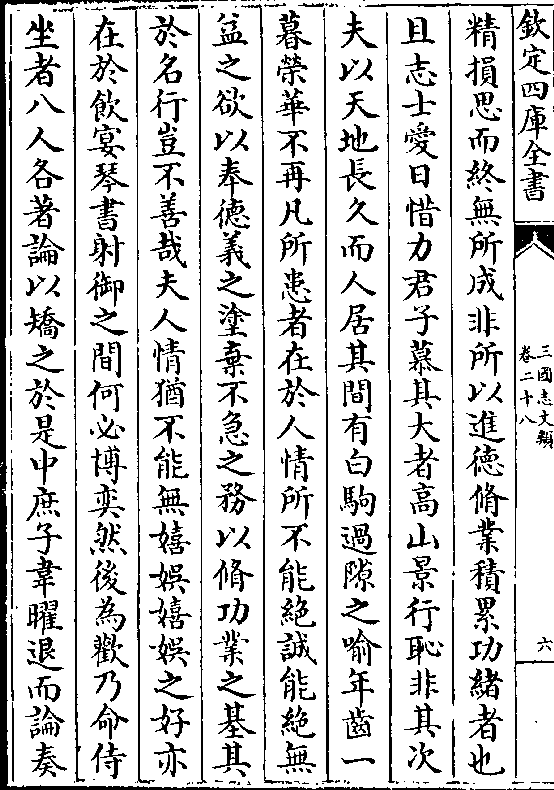 欽定四庫全書
三國志文類
卷二十八
六
精損思而終無所成非所以進德脩業積累功緒者也
且志士愛日惜力君子慕其大者高山景行恥非其次
夫以天地長久而人居其間有白駒過隙之喻年齒一
暮榮華不再凡所患者在於人情所不能絶誠能絶無
益之欲以奉德義之塗棄不急之務以脩功業之基其
於名行豈不善哉夫人情猶不能無嬉娯嬉娯之好亦
在於飲宴琴書射御之間何必博奕然後為歡乃命侍
坐者八人各著論以矯之於是中庶子韋曜退而論奏